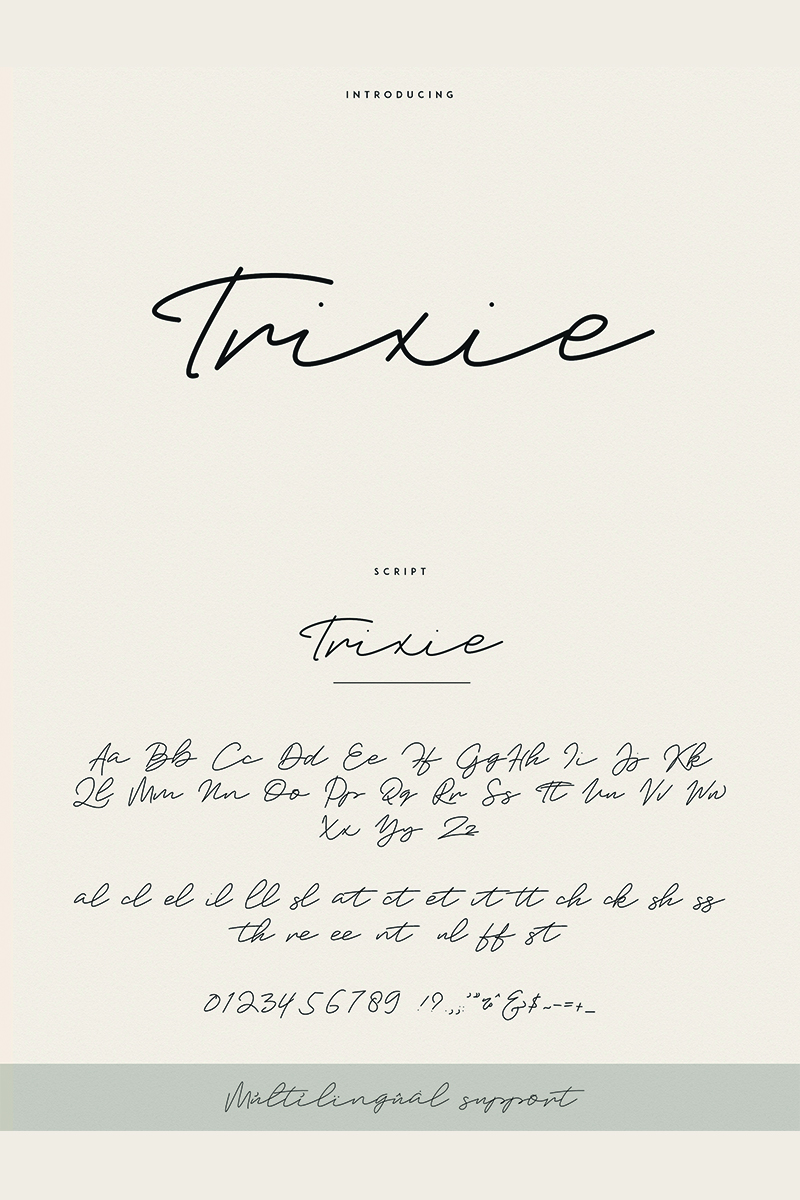 INTRODUCING
Trixie
SCRIPT
Trixie
Aa Bb Cc Dd Ee Ff Gg Hh Ii Jj Kk
Ll Mm Nn Oo Pp Qq Rr Ss Tt Uu Vv Ww
Xx Yy Zz
al cl el il ll sl at ct et it tt ch ck sh ss
th re ee nt ul ff st
0123456789 !? &$~–=+_
Multilingual support